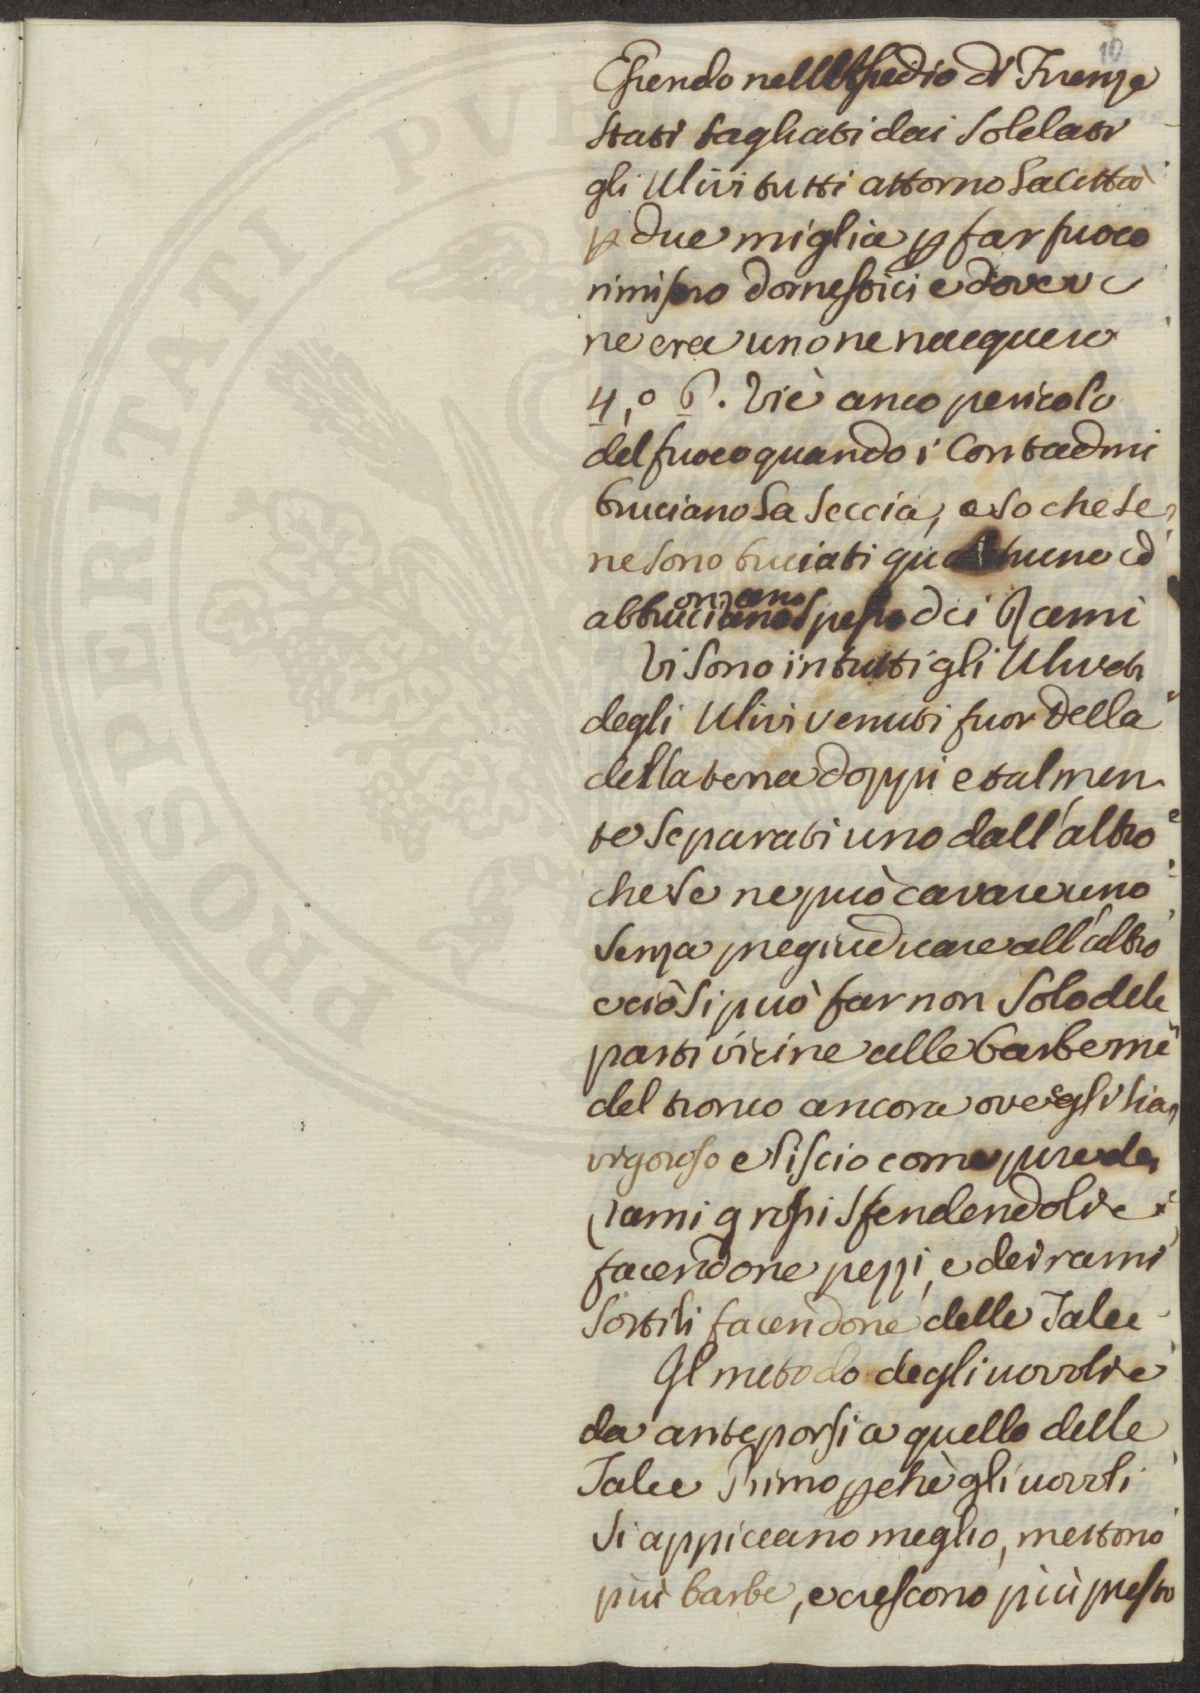 10
Essendo nell'Assedio di Firenze
stati tagliati dai soldati
gli Ulivi tutti attorno la Città
p due miglia p far fuoco
rimisero domestici e dove ve
ne era uno ne nacquero
4, o 6. Vi è anco pericolo
del fuoco quando i Contadini
bruciano la seccia, e so che se
ne sono bruciati qualchuno ed
abbronzano spesso dei Rami
Vi sono in tutti gli Uliveti
degli Ulivi venuti fuor della
della terra doppi e talmen
te separati uno dall'altro
che se ne può cavare uno
senza pregiudicare all'altro
e ciò si può far non solo dele
parti vicine alle barbe mà
del tronco ancora ove egli sia
vigoroso e liscio come pure dei
rami grossi sfendendoli e
facendone pezzi, e dei rami
sottili facendone delle Talee
Il metodo degli uovoli è
da anteporsi a quello delle
Talee Primo pchè gli uovoli
si appiccano meglio, mettono
più barbe, e crescono più presto
PROSPERITATI PVB